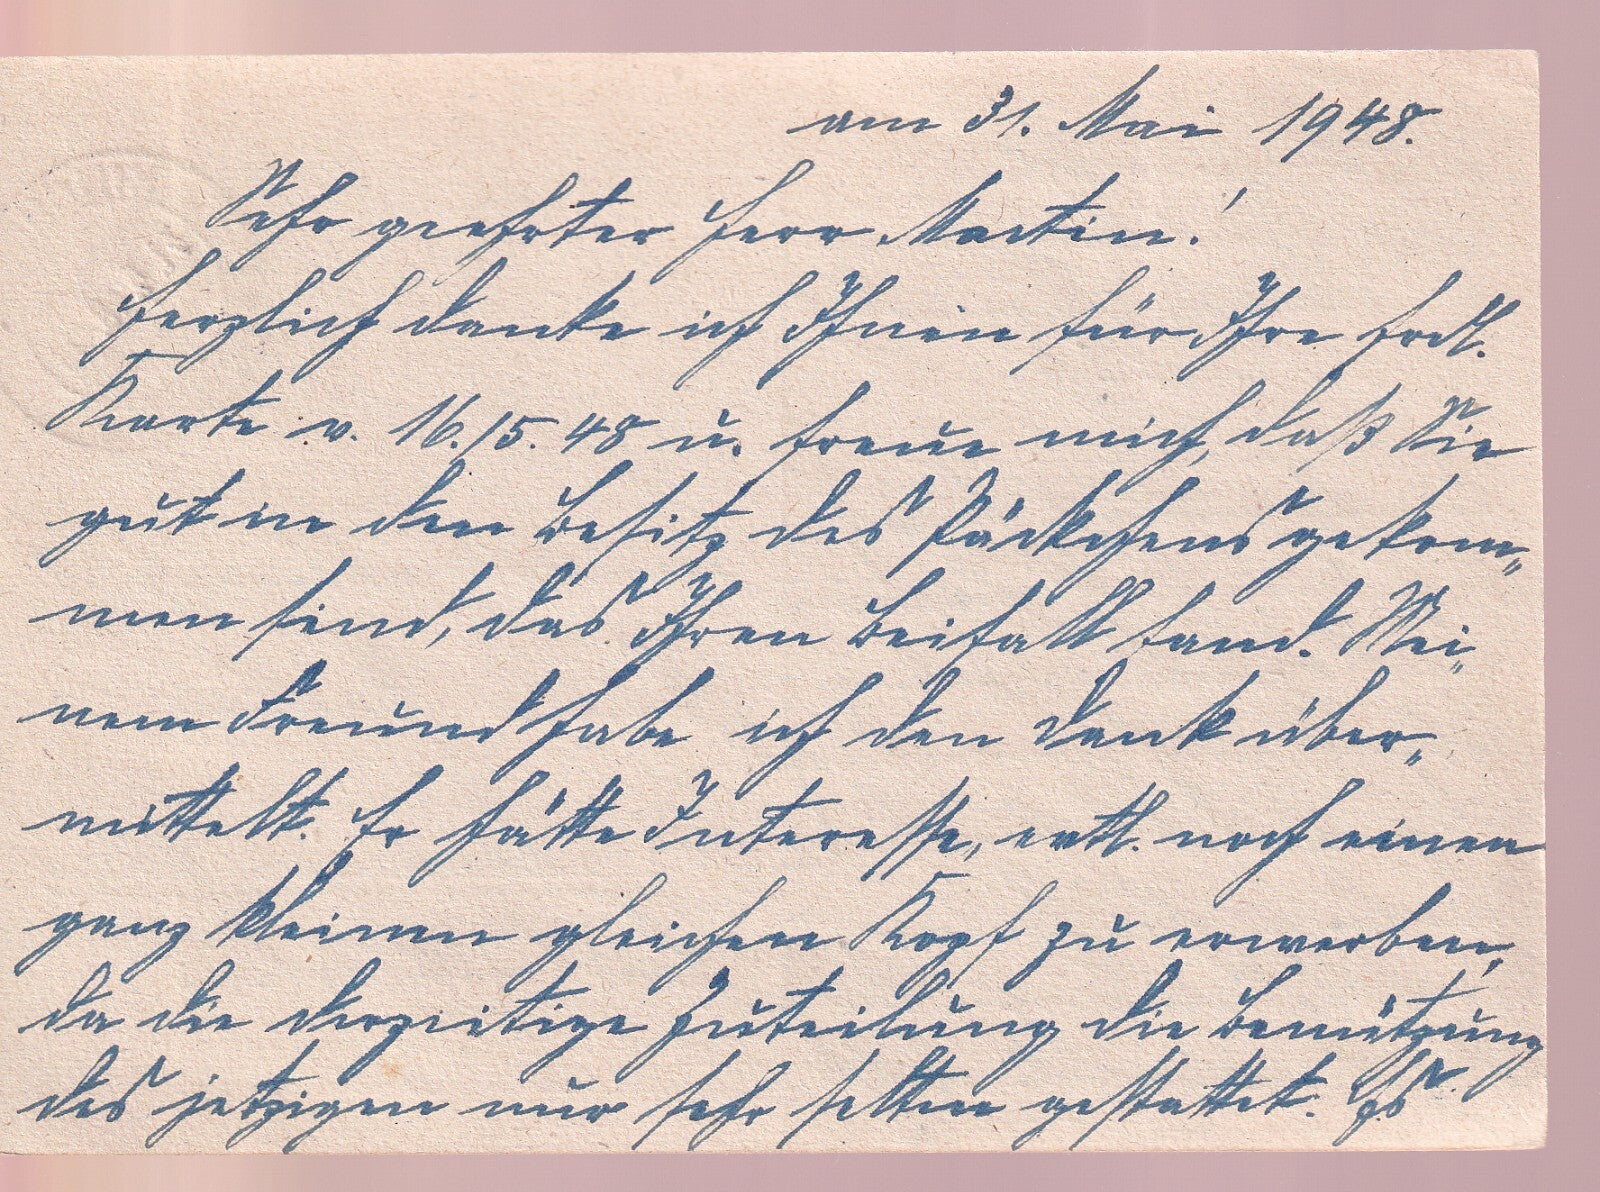 am 31. Mai 1948.
Sehr geehrter Herr Martin!
Herzlich danke ich Ihnen für Ihre frdl.
Karte v. 16./5. 48 u. freue mich, daß Sie
gut in den Besitz des Päckchens gekom„
men sind, das Ihren Beifall fand. Mei„
nem Freund habe ich den Dank über„
mittelt. Er hätte Interesse, evtl. noch einen
ganz kleinen gleichen Kopf zu erwerben,
da die derzeitige Zuteilung die Benützung
des jetzigen nur sehr selten gestattet. Es